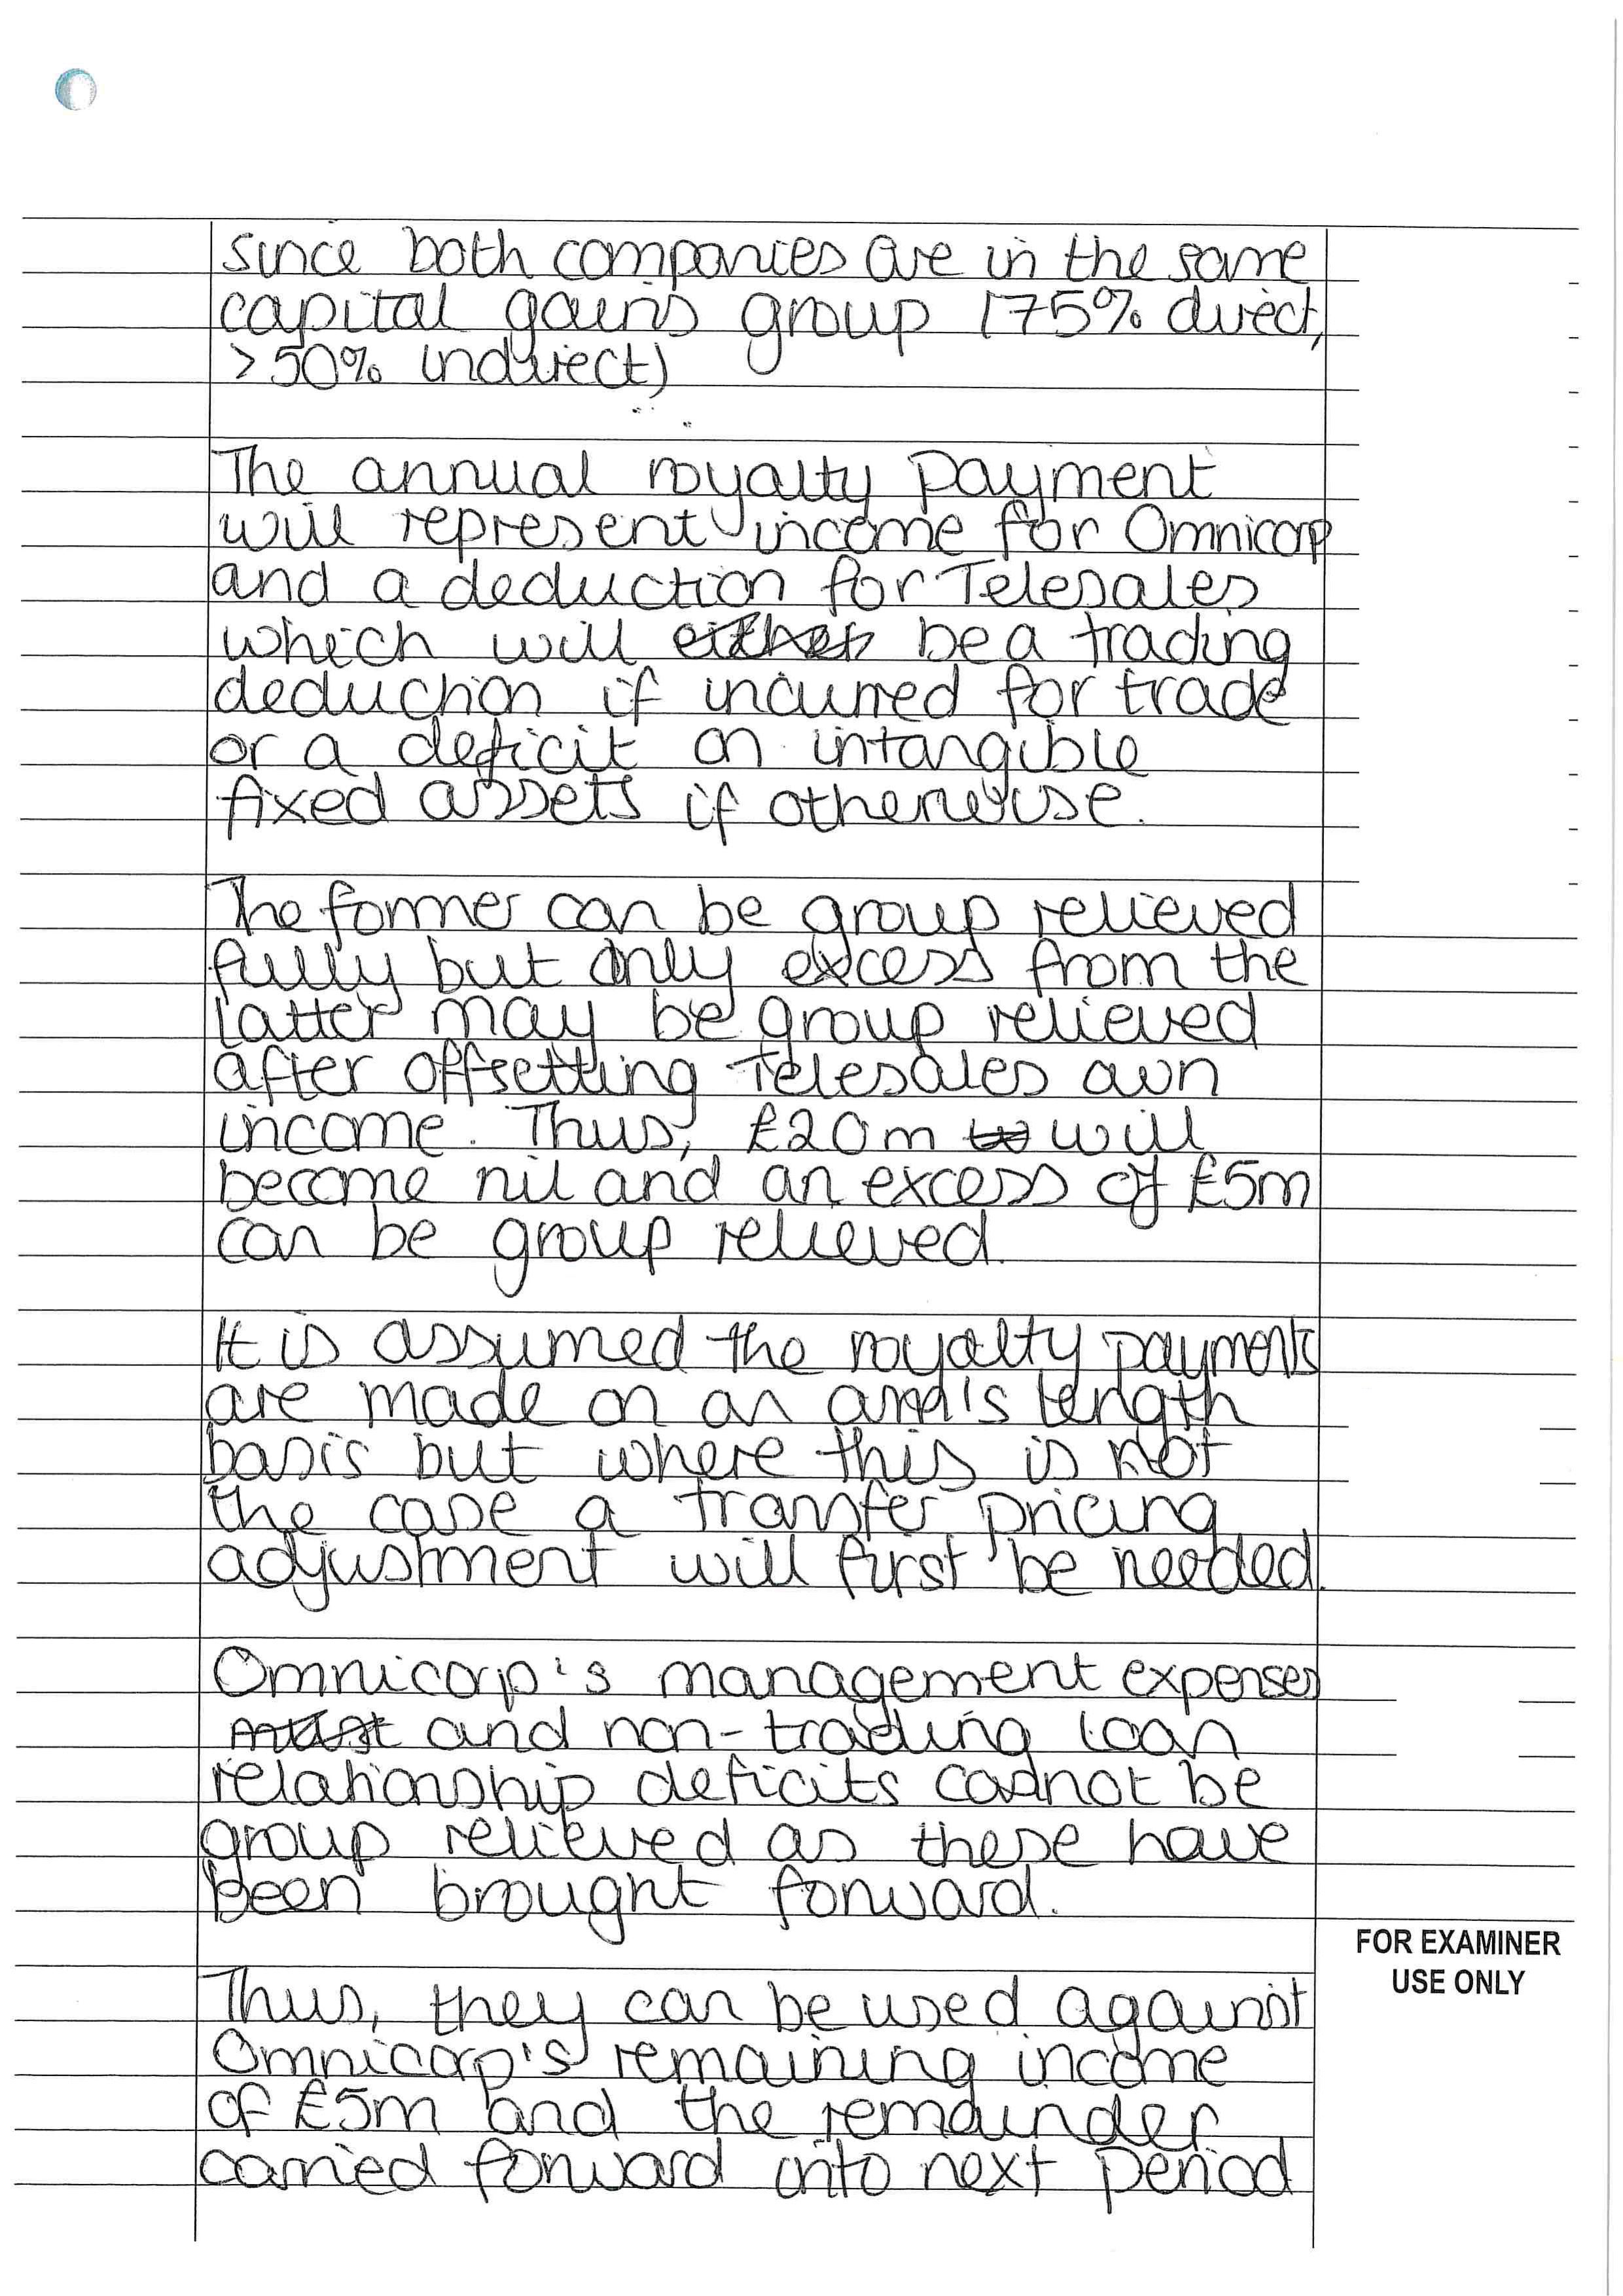 since both companies are in the same
capital gains group (75% direct,
> 50% indirect)
The annual royalty payment
will represent income for Omnicorp
and a deduction for Telesales
which will either be a trading
deduction if incurred for trade
or a deficit on intangible
fixed assets if otherwise.
The former can be group relieved
fully but only excess from the
latter may be group relieved
after offsetting Telesales own
income. Thus, £20m will
become nil and an excess of £5m
can be group relieved.
It is assumed the royalty payments
are made on an arm's length
basis but where this is not
the case a transfer pricing
adjustment will first be needed.
Omnicorp's management expenses
must and non-trading loan
relationship deficits cannot be
group relieved as these have
been brought forward.
FOR EXAMINER
USE ONLY
Thus, they can be used against
Omnicorp's remaining income
of £5m and the remainder
carried forward into next period